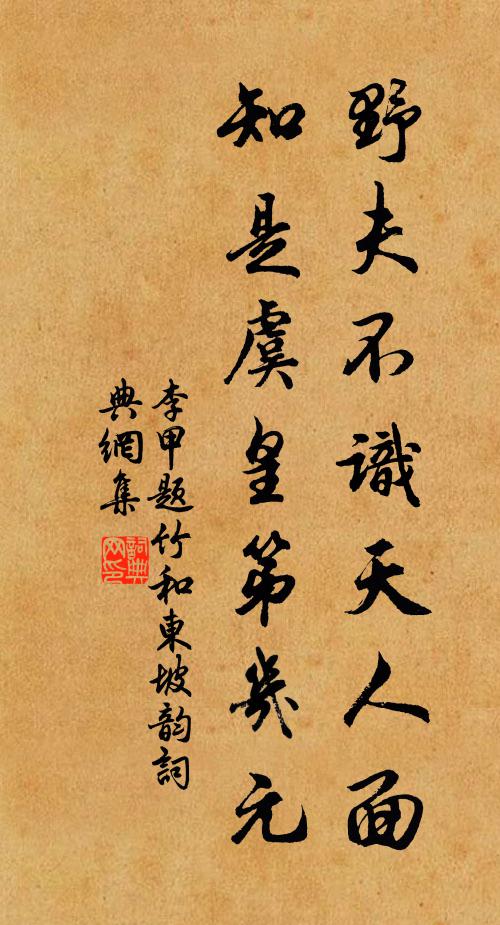 野夫不識天人面
知是虞皇第幾元
李甲題竹和東坡韵詞
典網集
詞典
网印